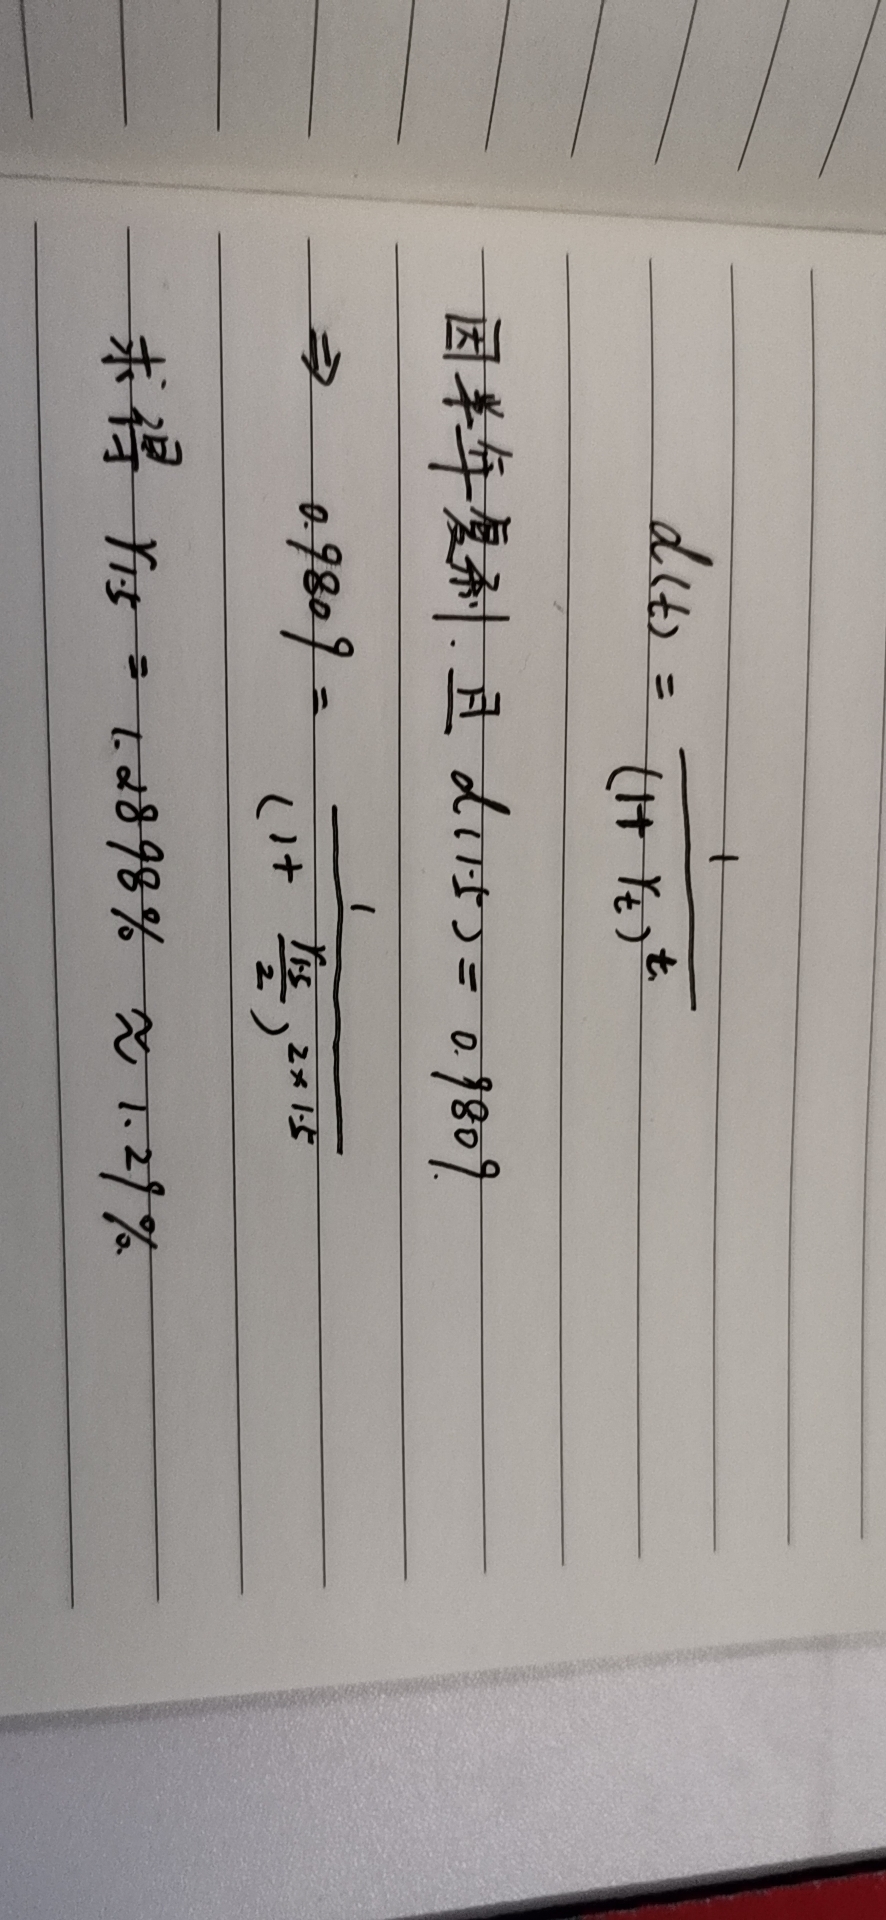 d(t) = 1/(1+γt)^t
因半年复利. 且 d(1.5) = 0.9809.
⇒ 0.9809 = 1/(1+ γ1.5/2)^2×1.5
求得 γ1.5 = 1.2898% ≈ 1.29%.